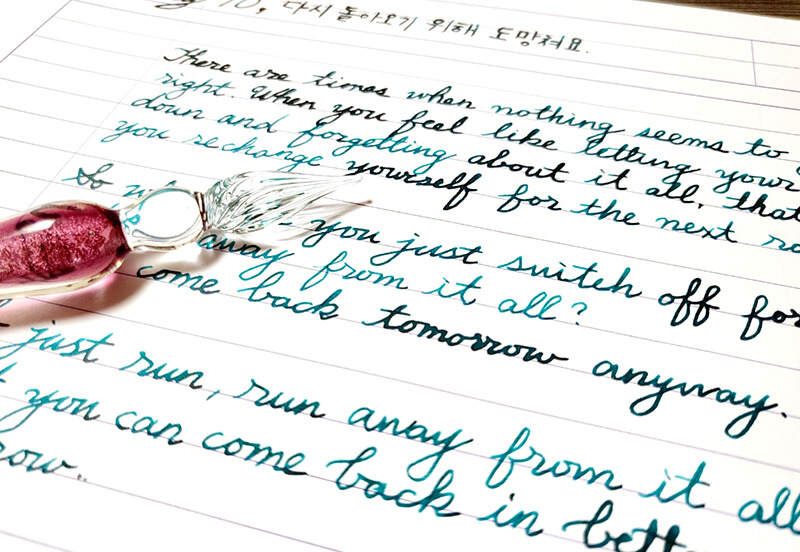 10, 다시 돌아오기 위해 도망쳐요.
There are times when nothing seems to
right. When you feel like letting your
down and forgetting about it all, that
you rechange yourself for the next
So
you just switch off for
away from it all?
come back tomorrow anyway.
just run, run away from it all
you can come back in